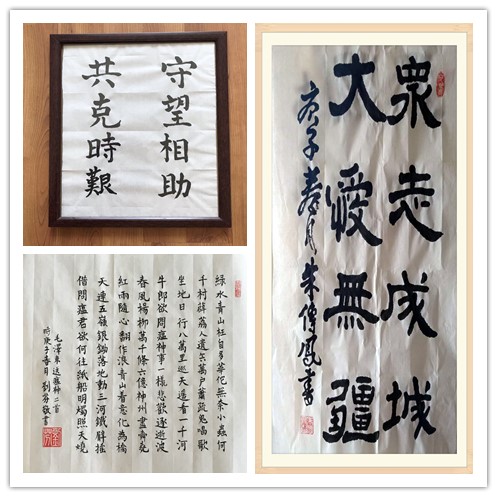 守望相助
共克時艱
綠水青山枉自多華佗無奈小蟲何
千村薜荔人遺矢萬戶蕭疏鬼唱歌
坐地日行八萬里巡天遙看一千河
牛郎欲問瘟神事一樣悲歡逐逝波
春風楊柳萬千條六億神州盡舜堯
紅雨隨心翻作浪青山看意化為橋
天連五嶺銀鋤落地動三河鐵臂搖
借問瘟君欲何往紙船明燭照天燒
毛澤東送瘟神二首
時庚子春月劉芳敬書
眾志成城
大愛無疆
庚子春月朱傳鳳書